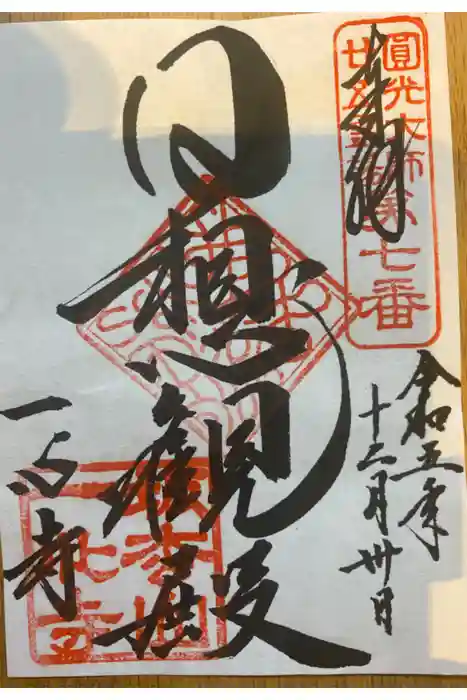 奉拝
圓光大師
廿五霊場第七番
令和五年
十二月卅日
日想観殿
一心寺